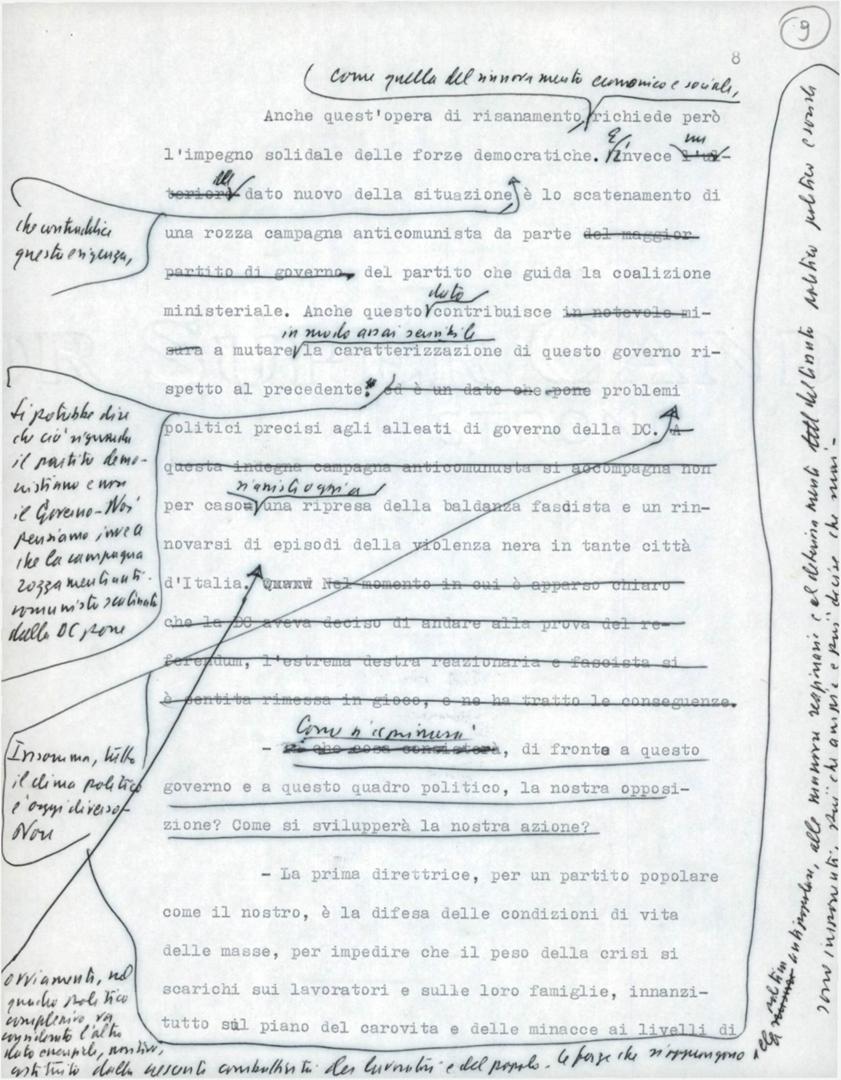 9
8
come quella del rinnovamento economico e sociale,
Anche quest'opera di risanamento, richiede però
l'impegno solidale delle forze democratiche. E invece un
l'ul-
teriore dato nuovo della situazione è lo scatenamento di
che contraddice
questa esigenza,
una rozza campagna anticomunista da parte del maggior
partito di governo, del partito che guida la coalizione
dato
ministeriale. Anche questo contribuisce in notevole mi-
in modo assai sensibile
sura a mutare la caratterizzazione di questo governo ri-
spetto al precedente. ed è un dato che pone problemi
Si potrebbe dire
che ciò riguarda
il partito demo-
cristiano e non
il Governo - Noi
pensiamo invece
che la campagna
rozzamente anti-
comunista scatenata
dalla DC pone
politici precisi agli alleati di governo della DC. A
questa indegna campagna anticomunista si accompagna non
si assiste oggi a
per caso una ripresa della baldanza fascista e un rin-
novarsi di episodi della violenza nera in tante città
d'Italia. Quand Nel momento in cui è apparso chiaro
che la DC aveva deciso di andare alla prova del re-
ferendum, l'estrema destra reazionaria e fascista si
è sentita rimessa in gioco, e ne ha tratto le conseguenze.
Insomma, tutto
il clima politico
è oggi diverso -
Non
Come si esprimerà
- In che cosa consisterà, di fronte a questo
governo e a questo quadro politico, la nostra opposi-
zione? Come si svilupperà la nostra azione?
- La prima direttrice, per un partito popolare
come il nostro, è la difesa delle condizioni di vita
delle masse, per impedire che il peso della crisi si
scarichi sui lavoratori e sulle loro famiglie, innanzi-
tutto sul piano del carovita e delle minacce ai livelli di
Ovviamente, nel
quadro politico
complessivo va
considerato l'altro
dato essenziale, positivo,
costituito dalla crescente combattività dei lavoratori e del popolo. Le forze che si oppongono
alla politica antipopolare, alle manovre reazionarie e al deterioramento del tessuto politico e sociale
sono imponenti, più che ampie e più decise che mai -